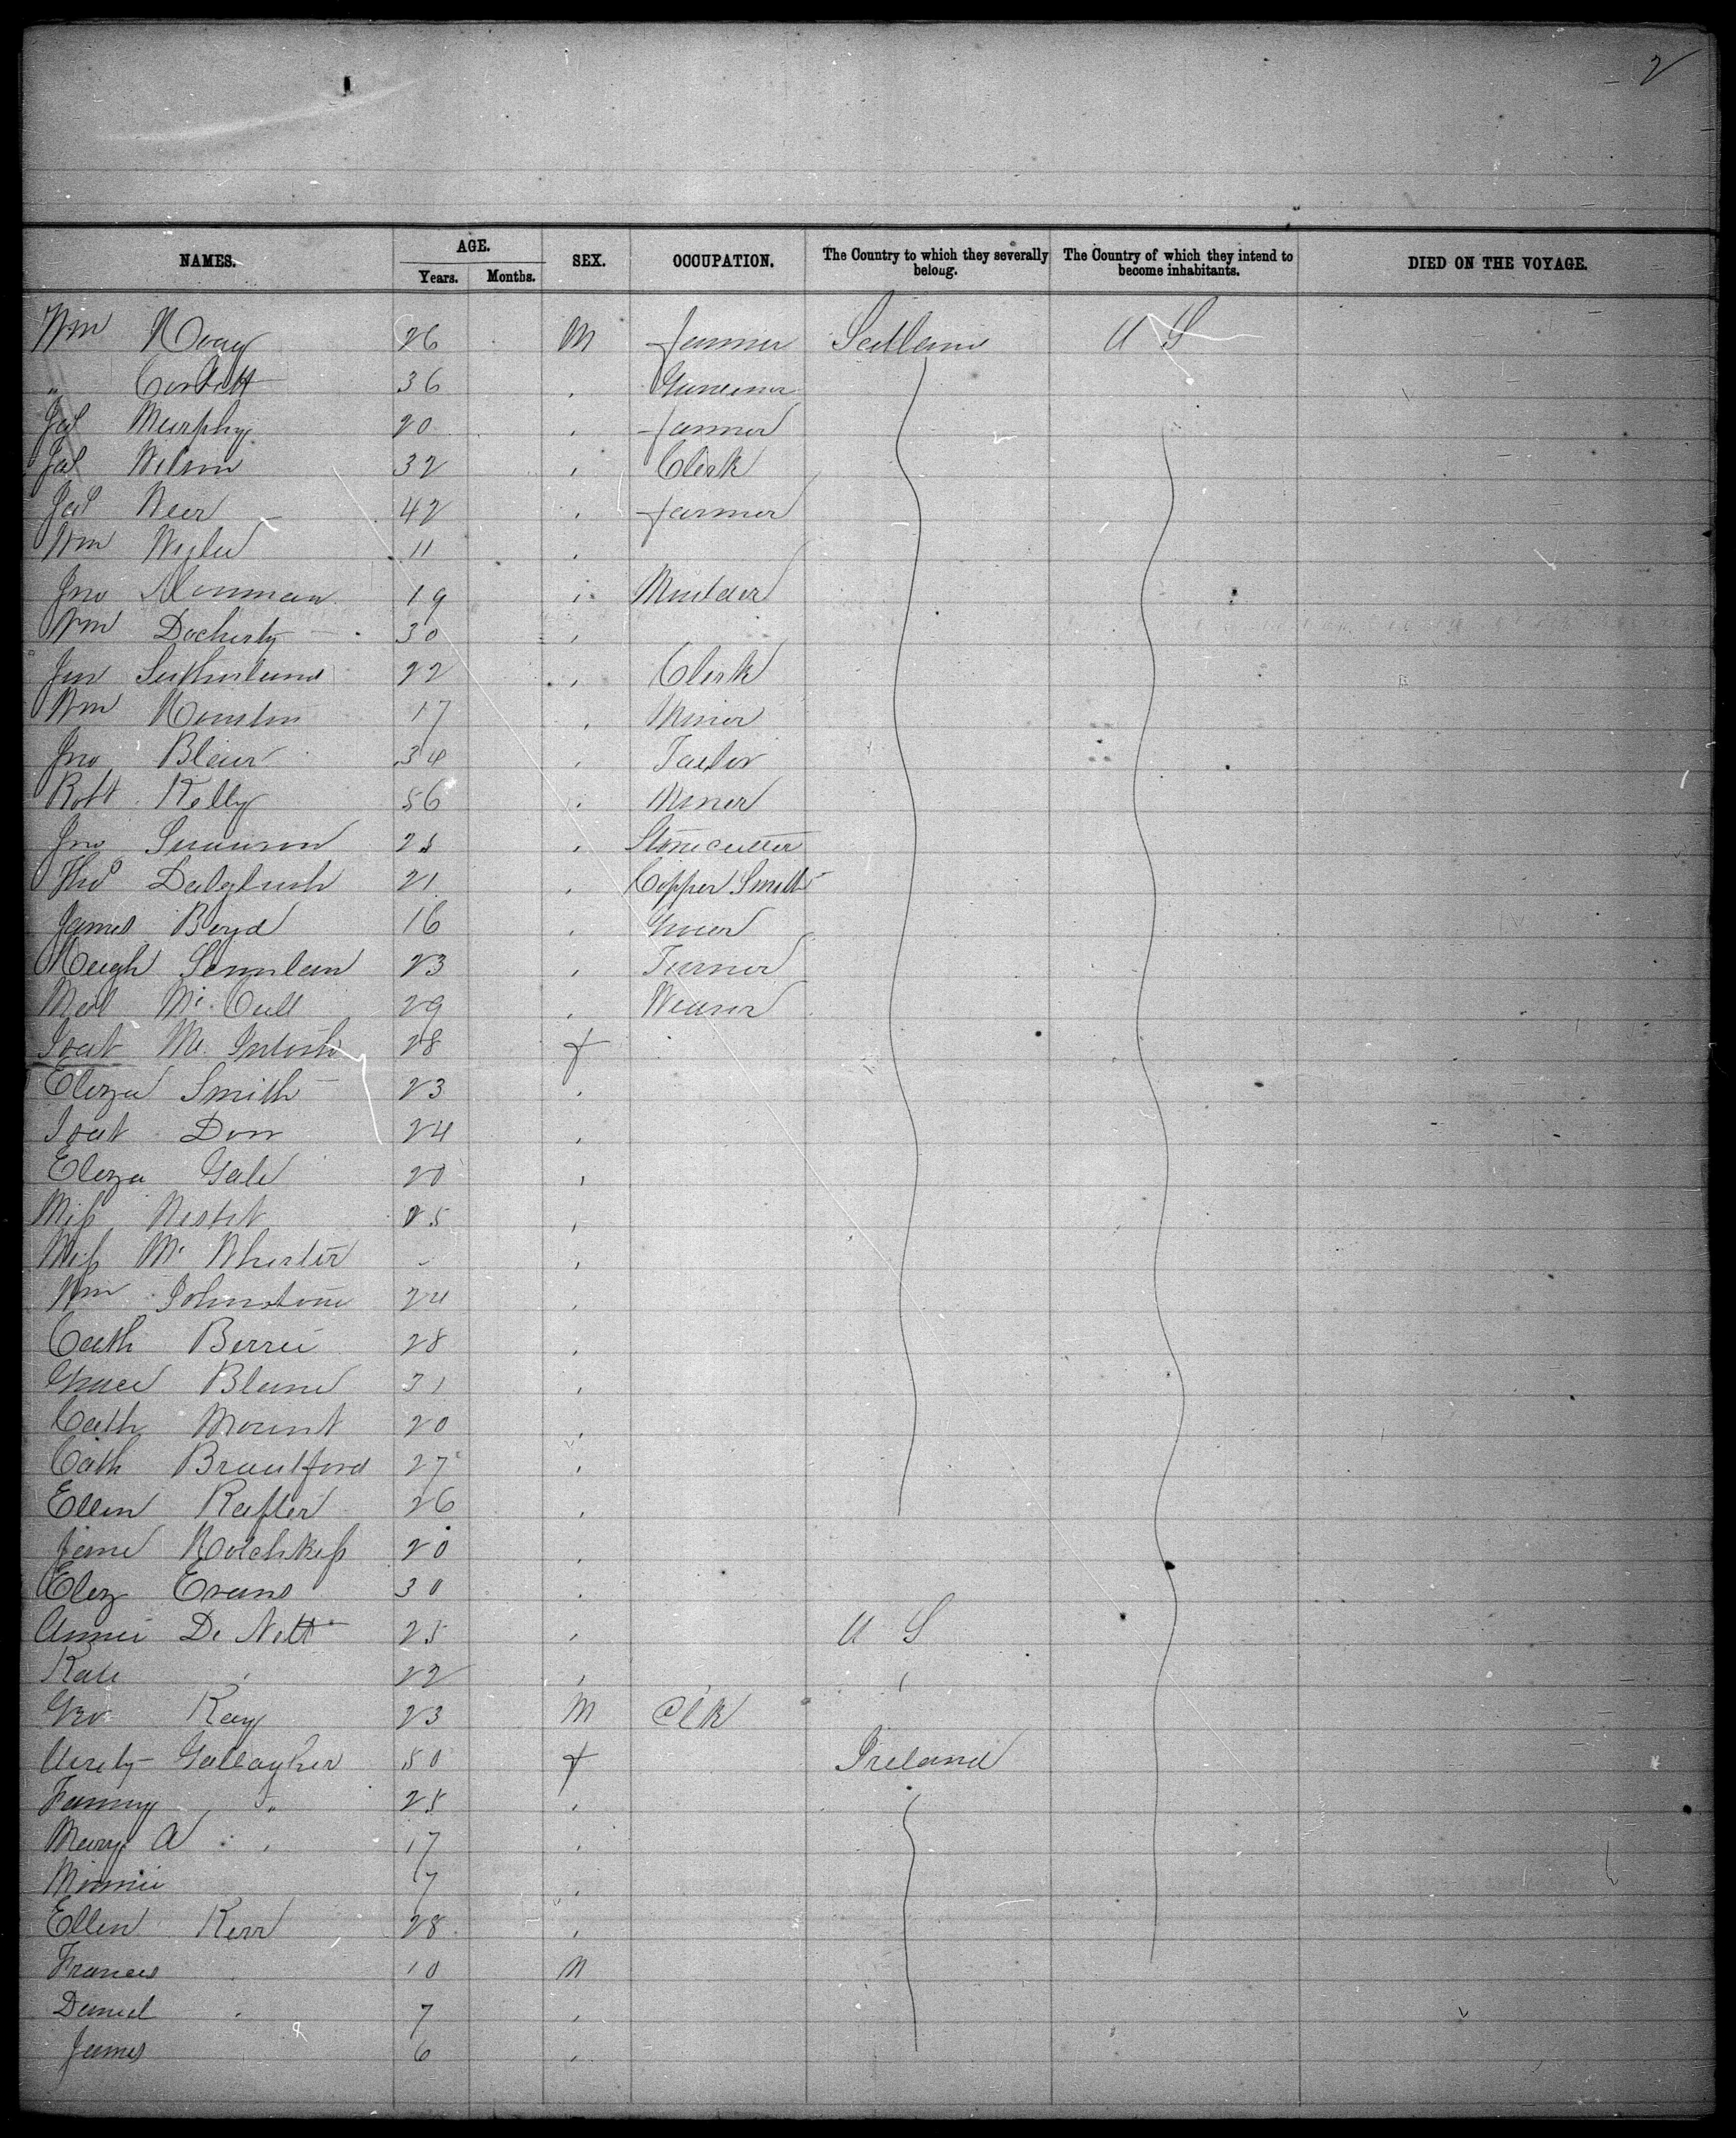 2
NAMES. AGE. Years. Months. SEX. OCCUPATION. The Country to which they severally belong. The Country of which they intend to become inhabitants. DIED ON THE VOYAGE.
Wm 26 M farmer Scotland U S
" Corbett 36
Jas Murphy 20 farmer
Jas Wilson 32 Clerk
Jas Weir 42 farmer
Wm Wylie 11
Jno 19 Moulder
Wm Docherty 30
Jno Sutherland 22 Clerk
Wm Houston 17 Miner
Jno Blair 34 Tailor
Robt Kelly 56 Miner
Jno Swanson 25 Stonecutter
Thos Dalglish 21 Copper Smith
James Boyd 16 Grocer
Hugh Scanlan 23 Turner
Mc Call 29 Weaver
Isat Mc Intosh 28 f
Eliza Smith 23
Isat Don 24
Eliza Gale 20
Miss Nisbet 25
Miss Mc Whirter
Wm Johnstone 24
Cath Berrie 28
Grace Blane 31
Cath Mount 20
Cath Brantford 27
Ellen Rafter 26
Jane Hotchkiss 20
Eliz Evans 30
Annie De Nett 25 U S
Kate " 22 "
Geo Kay 23 M Clk
Gallagher 50 f Ireland
Fanny " 25
Mary A " 17
Minnie 7
Ellen Kerr 28
Frances 10 M
Daniel " 7
James 6